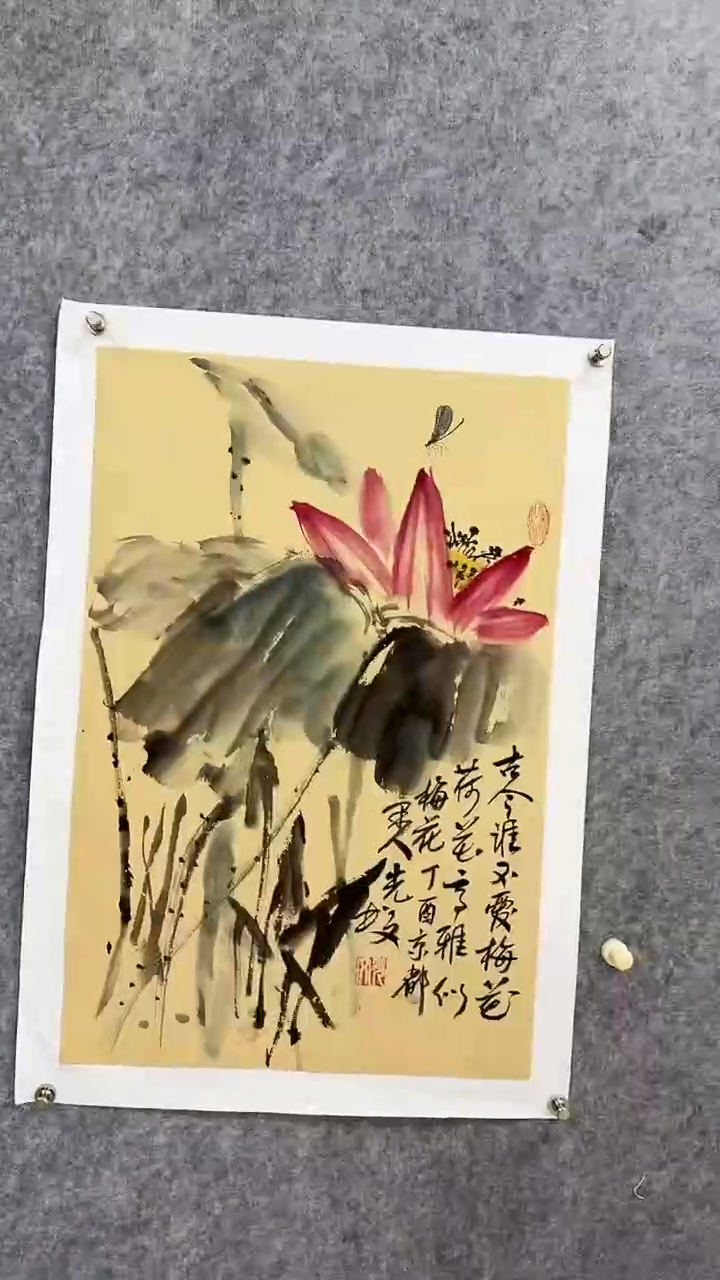 古今谁不爱梅花
荷花高雅似
梅花丁酉京都
墨人先文